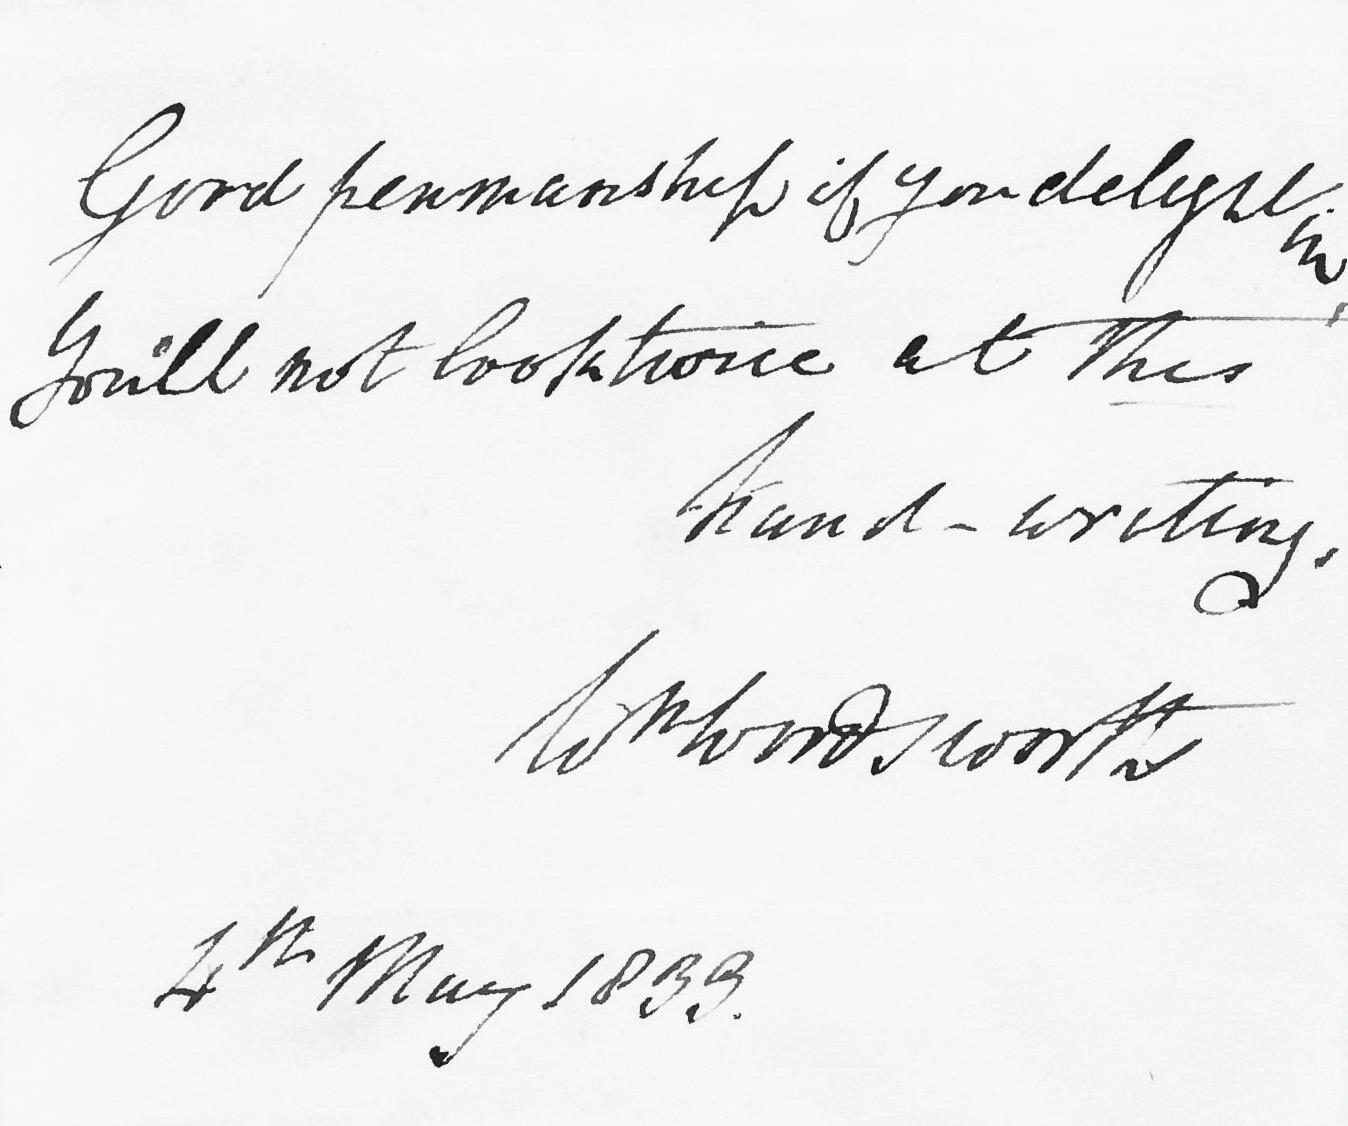 Good penmanship if you delight in,
You'll not look twice at this
hand-writing.
Wm Wordsworth
4th May 1833.